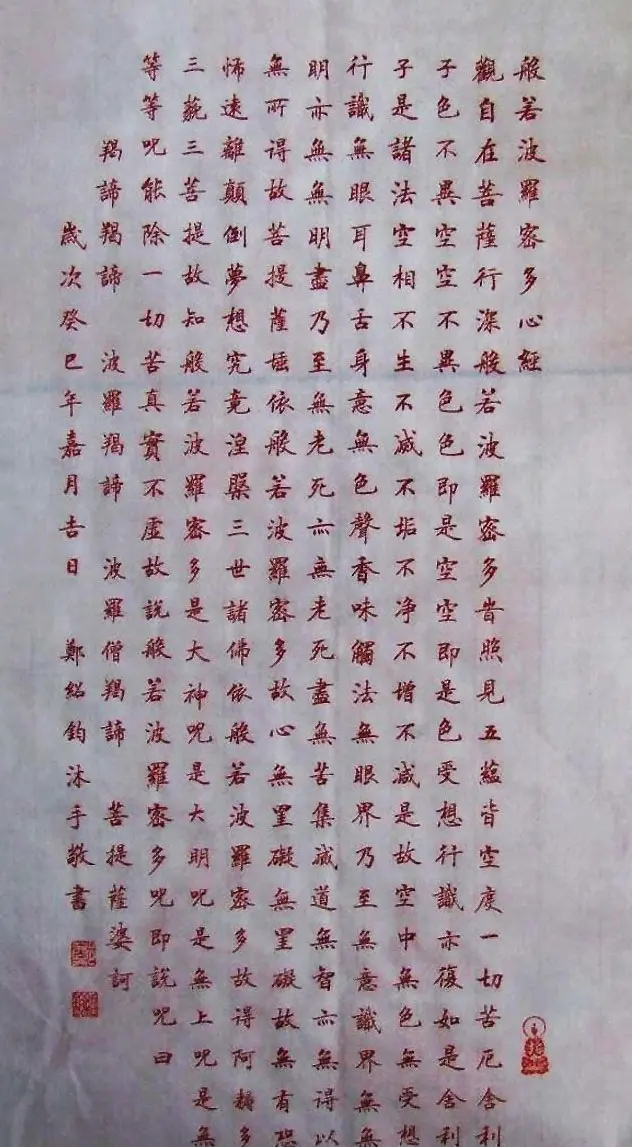 般若波羅密多心經
觀自在菩薩行深般若波羅密多旹照見五蘊皆空度一切苦厄舍利
子色不異空空不異色色即是空空即是色受想行識亦復如是舍利
子是諸法空相不生不滅不垢不净不增不減是故空中無色無受想
行識無眼耳鼻舌身意無色聲香味觸法無眼界乃至無意識界無無
明亦無無明盡乃至無老死亦無老死盡無苦集滅道無智亦無得以
無所得故菩提薩埵依般若波羅密多故心無罣礙無罣礙故無有恐
怖遠離顛倒夢想究竟涅槃三世諸佛依般若波羅密多故得阿耨多
三藐三菩提故知般若波羅密多是大神呪是大明呪是無上呪是無
等等呪能除一切苦真實不虛故說般若波羅密多呪即說呪曰
羯諦羯諦 波羅羯諦 波羅僧羯諦 菩提薩婆訶
歲次癸巳年嘉月吉日 鄭紹鈞沐手敬書